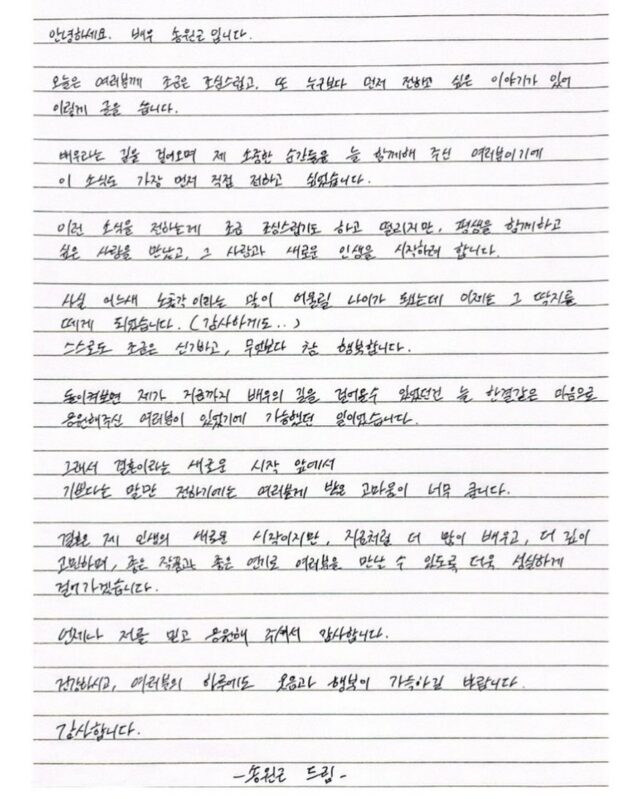 안녕하세요. 배우 송원근입니다.
오늘은 여러분께 조금은 조심스럽고, 또 누구보다 먼저 전하고 싶은 이야기가 있어
이렇게 글을 씁니다.
배우라는 길을 걸어오며 제 소중한 순간들을 늘 함께해 주신 여러분이기에
이 소식도 가장 먼저 직접 전하고 싶었습니다.
이런 소식을 전하는게 조금 조심스럽기도 하고 떨리지만, 평생을 함께하고
싶은 사람을 만났고, 그 사람과 새로운 인생을 시작하려 합니다.
사실 어느새 노총각이라는 말이 어울릴 나이가 되었는데 이제는 그 딱지를
떼게 되었습니다. (감사하게도..)
스스로도 조금은 신기하고, 무엇보다 참 행복합니다.
돌이켜보면 제가 지금까지 배우의 길을 걸어올수 있었던건 늘 한결같은 마음으로
응원해주신 여러분이 있었기에 가능했던 일이었습니다.
그래서 결혼이라는 새로운 시작 앞에서
기쁘다는 말만 전하기에는 여러분께 받은 고마움이 너무 큽니다.
결혼은 제 인생의 새로운 시작이지만, 지금처럼 더 많이 배우고, 더 깊이
고민하며, 좋은 작품과 좋은 연기로 여러분을 만날 수 있도록 더욱 성실하게
걸어가겠습니다.
언제나 저를 믿고 응원해 주셔서 감사합니다.
건강하시고, 여러분의 하루에도 웃음과 행복이 가득하길 바랍니다.
감사합니다.
-송원근 드림-